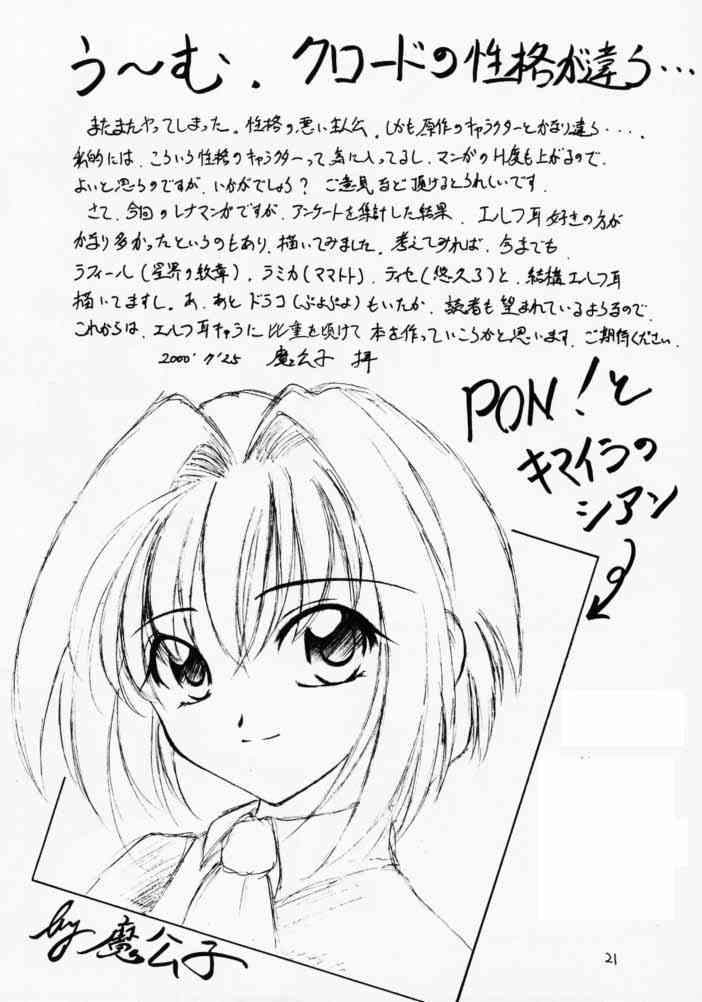 う〜む、クロードの性格が違う…
またまたやってしまった。性格の悪い主人公。しかも原作のキャラクターとかなり違う・・・・。
私的には、こういう性格のキャラクターって気に入ってるし、マンガのH度も上がるので、
よいと思うのですが、いかがでしょう？ご意見など頂けるとうれしいです。
さて、今回のレナマンガですが、アンケートを集計した結果、エルフ耳好きの方が
かなり多かったというのもあり、描いてみました。考えてみれば、今までも
ラフィール（星界の紋章）、ラミカ（ママトト）、ティセ（悠久3）と、結構エルフ耳
描いてますし。あ、あとドラコ（ぷよぷよ）もいたか。読者も望まれているようなので、
これからは、エルフ耳キャラに比重を傾けて本を作っていこうかと思います。ご期待ください。
2000' 7'25 魔公子 拝
PON！と
キマイラの
シアン
by 魔公子
21